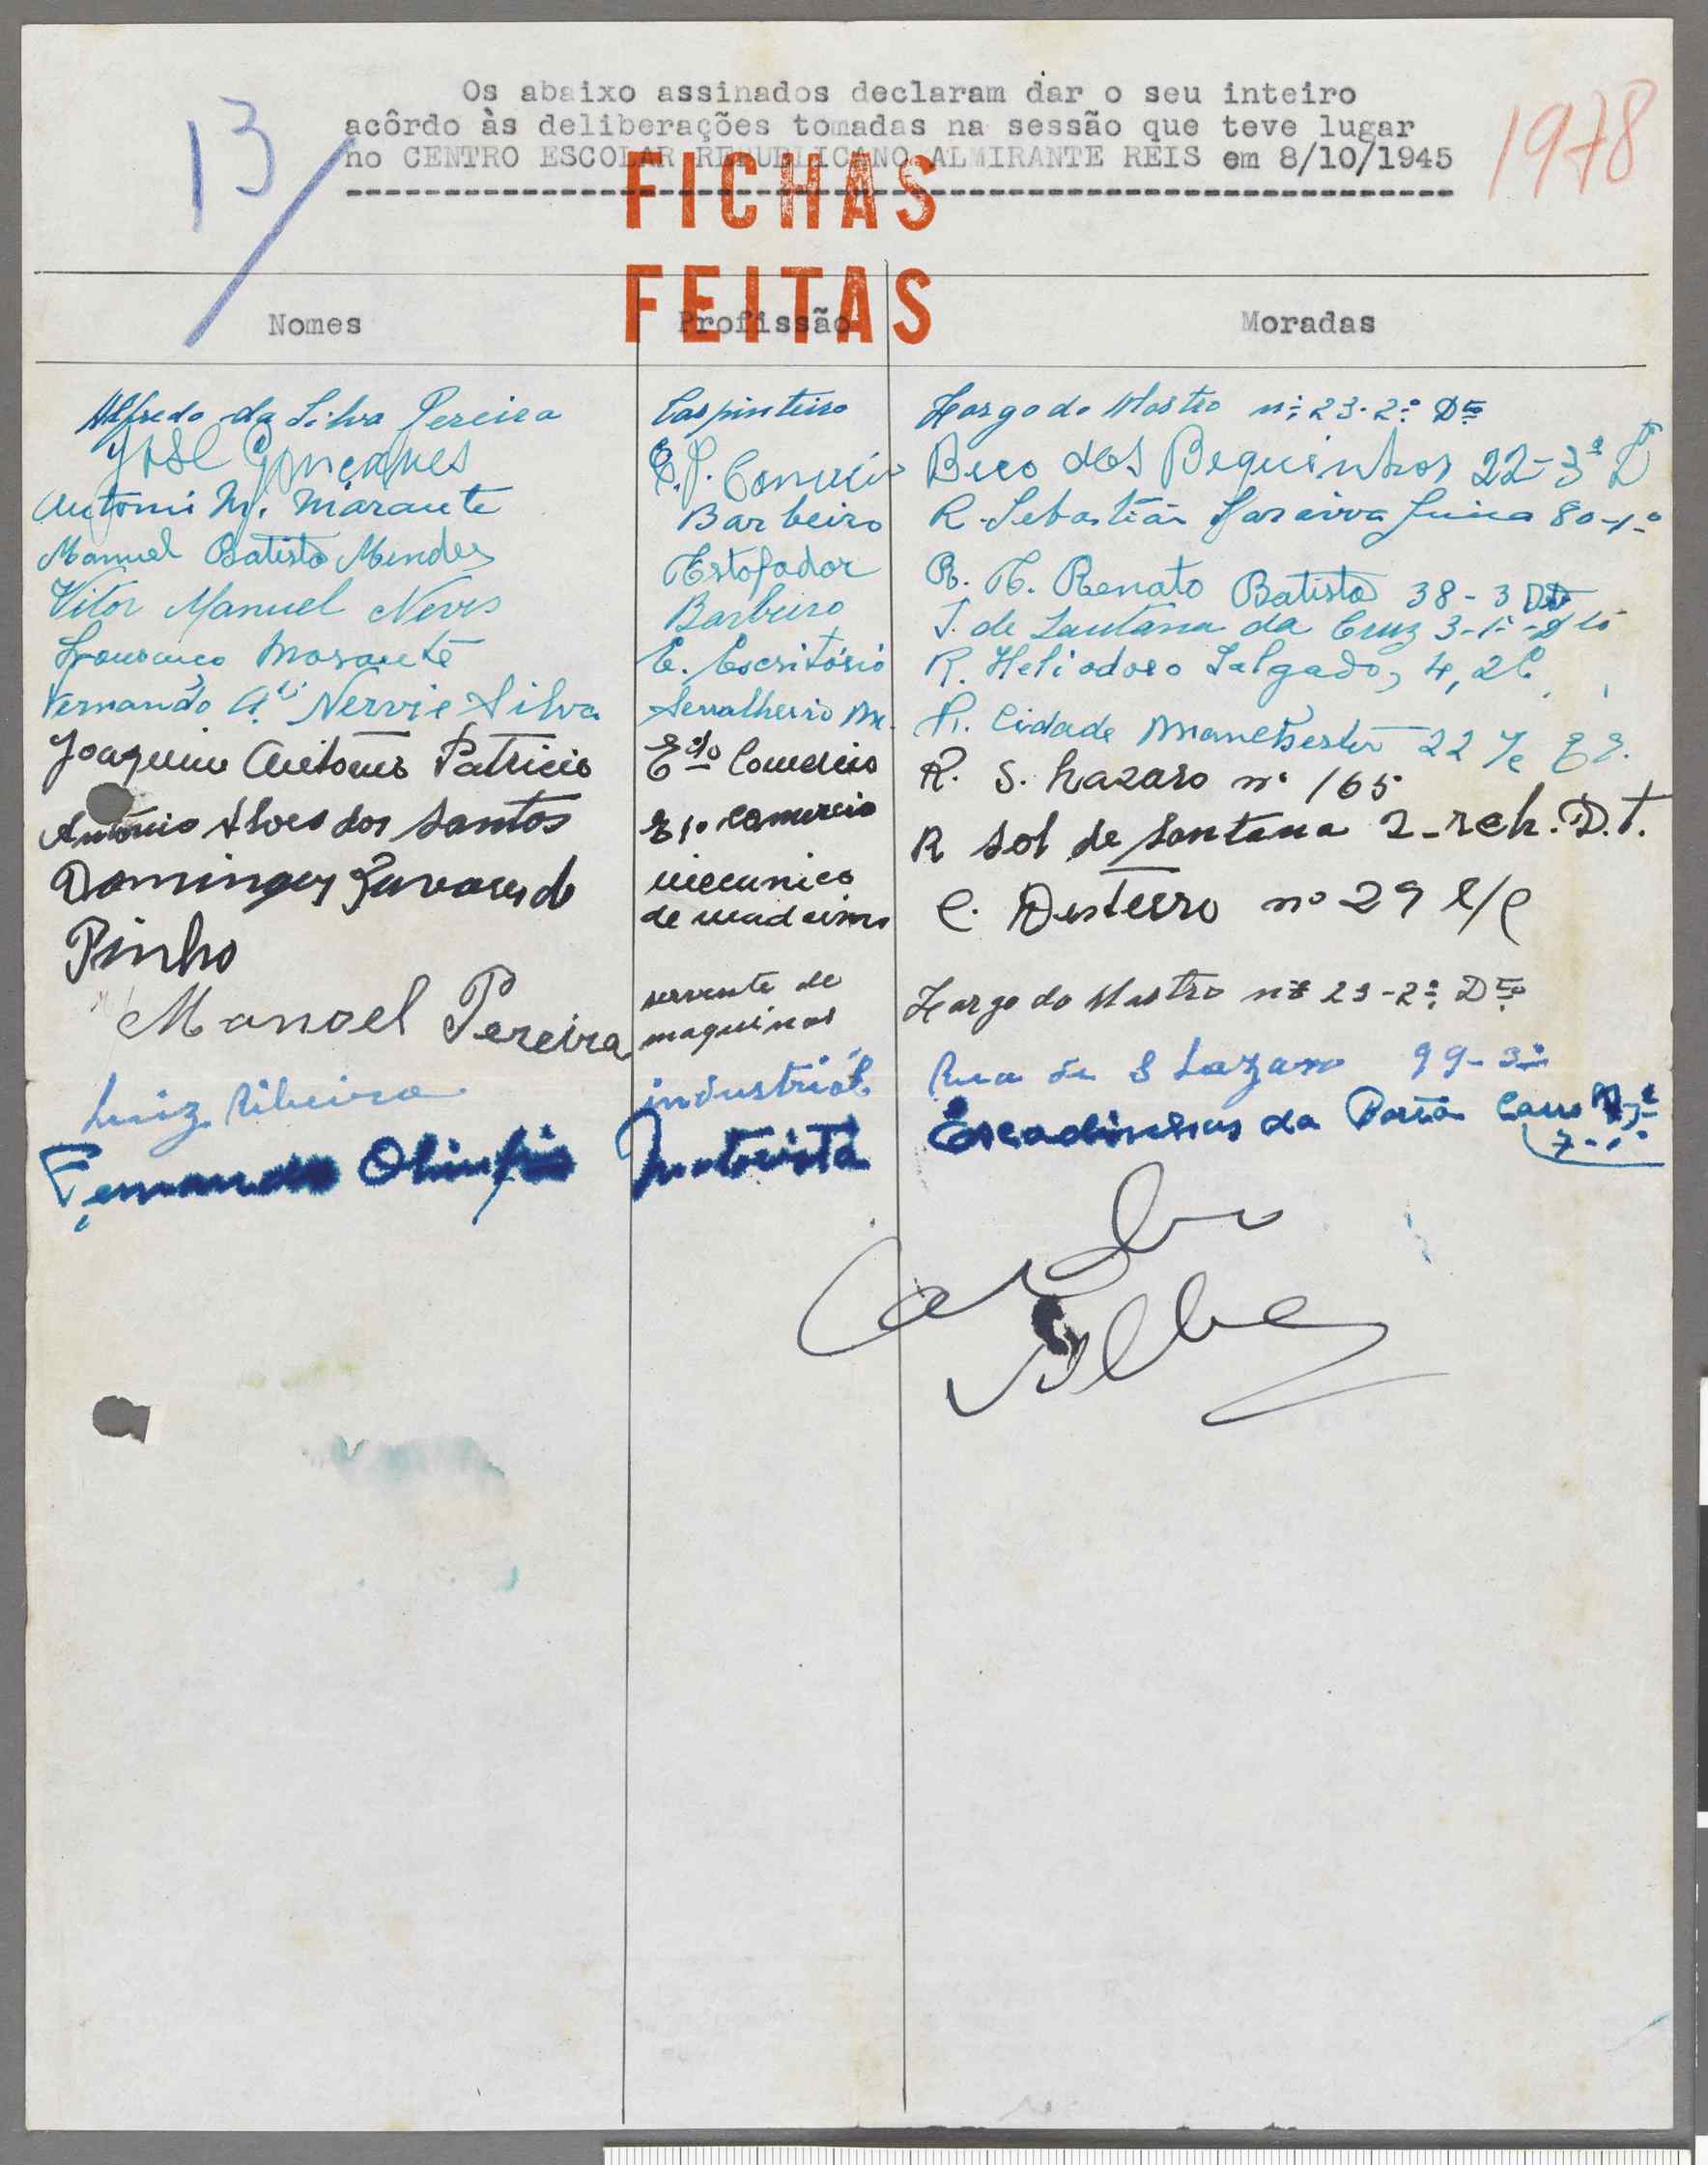 13
Os abaixo assinados declaram dar o seu inteiro
acôrdo às deliberações tomadas na sessão que teve lugar
no CENTRO ESCOLAR REPUBLICANO ALMIRANTE REIS em 8/10/1945
1978
FICHAS
FEITAS
Nomes Profissão Moradas
Alfredo da Silva Pereira Carpinteiro Largo do Mastro nº 23-2º Dto
José Gonçalves E. Comercio Beco dos Bequinhos 22-3º D
Antonio M. Marante Barbeiro R. Sebastião Saraiva Lima 80-1º
Manuel Batista Mendes Estofador R. T. Renato Batista 38-3 Dt
Vitor Manuel Neves Barbeiro T. de Santana da Cruz 3-1º-Dto
Lourenço Marante E. Escritório R. Heliodoro Salgado, 4, 2E
Fernando Silva Serralheiro M. R. Cidade Manchester 22
Joaquim Antonio Patricio Edo Comercio R. S. Lazaro nº 165
Antonio Alves dos Santos E/º Comercio R Sol de Santana 2-rch. D.T.
Domingos Tavares de mecanico
de madeiras C. Desterro nº 29 r/c
Pinho
Manoel Pereira servente de
maquinas Largo do Mastro nº 23-2º Dto
Luiz Ribeiro industrial Rua de S Lazaro 99-3º
Fernando Olimpio Motorista Escadinhas da Porta Carro
7-1º